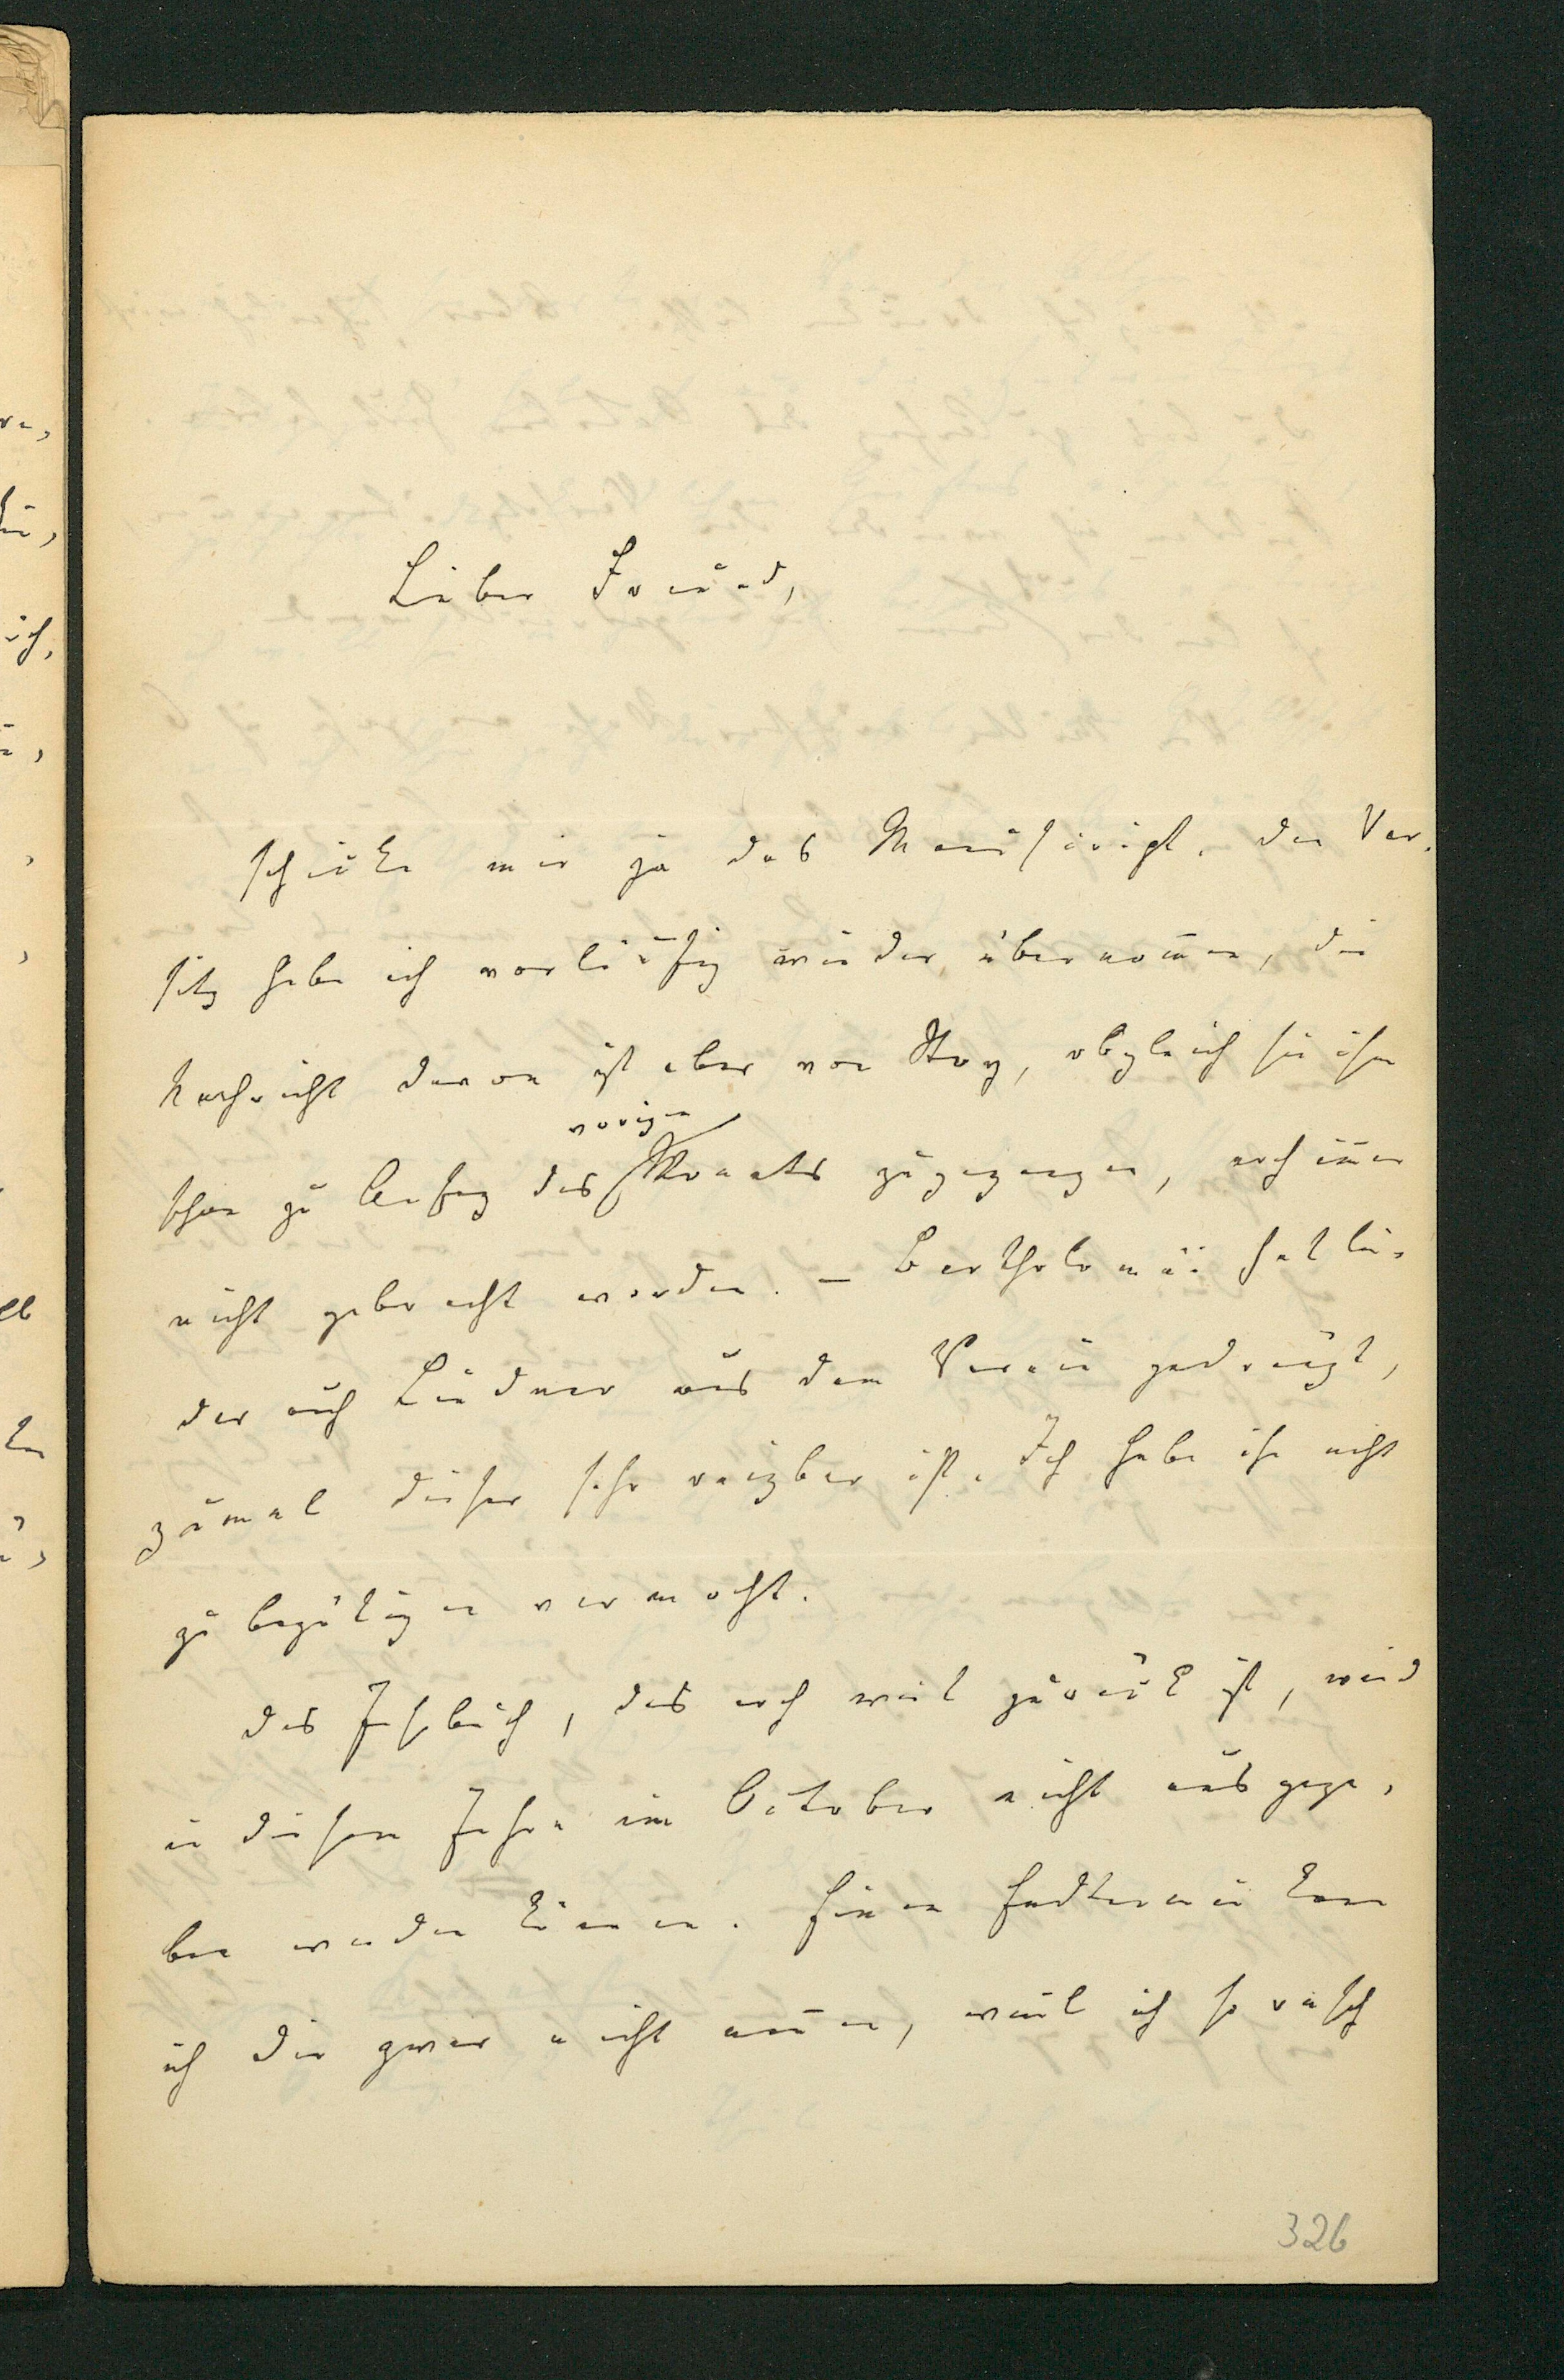 Lieber Freund,
schicke mir ja das Manuscript. Den Vor-
sitz habe ich vorläufig wieder übernommen, die
Nachricht davon ist aber von Stoy, obgleich sie ihm
schon zu Anfang des vorigen Monats zugegangen, noch immer
nicht gebracht worden. – Bartholomäi hat lei-
der auch Lindner aus dem Verein gedrängt,
zumal dieser sehr reizbar ist. Ich habe ihn nicht
zu begütigen vermocht.
Das Jahrbuch, das noch weit zurück ist, wird
in diesem Jahre im October nicht ausgege-
ben werden können. Einen Endtermin kann
ich Dir zwar nicht nennen, weil ich so rasch
326